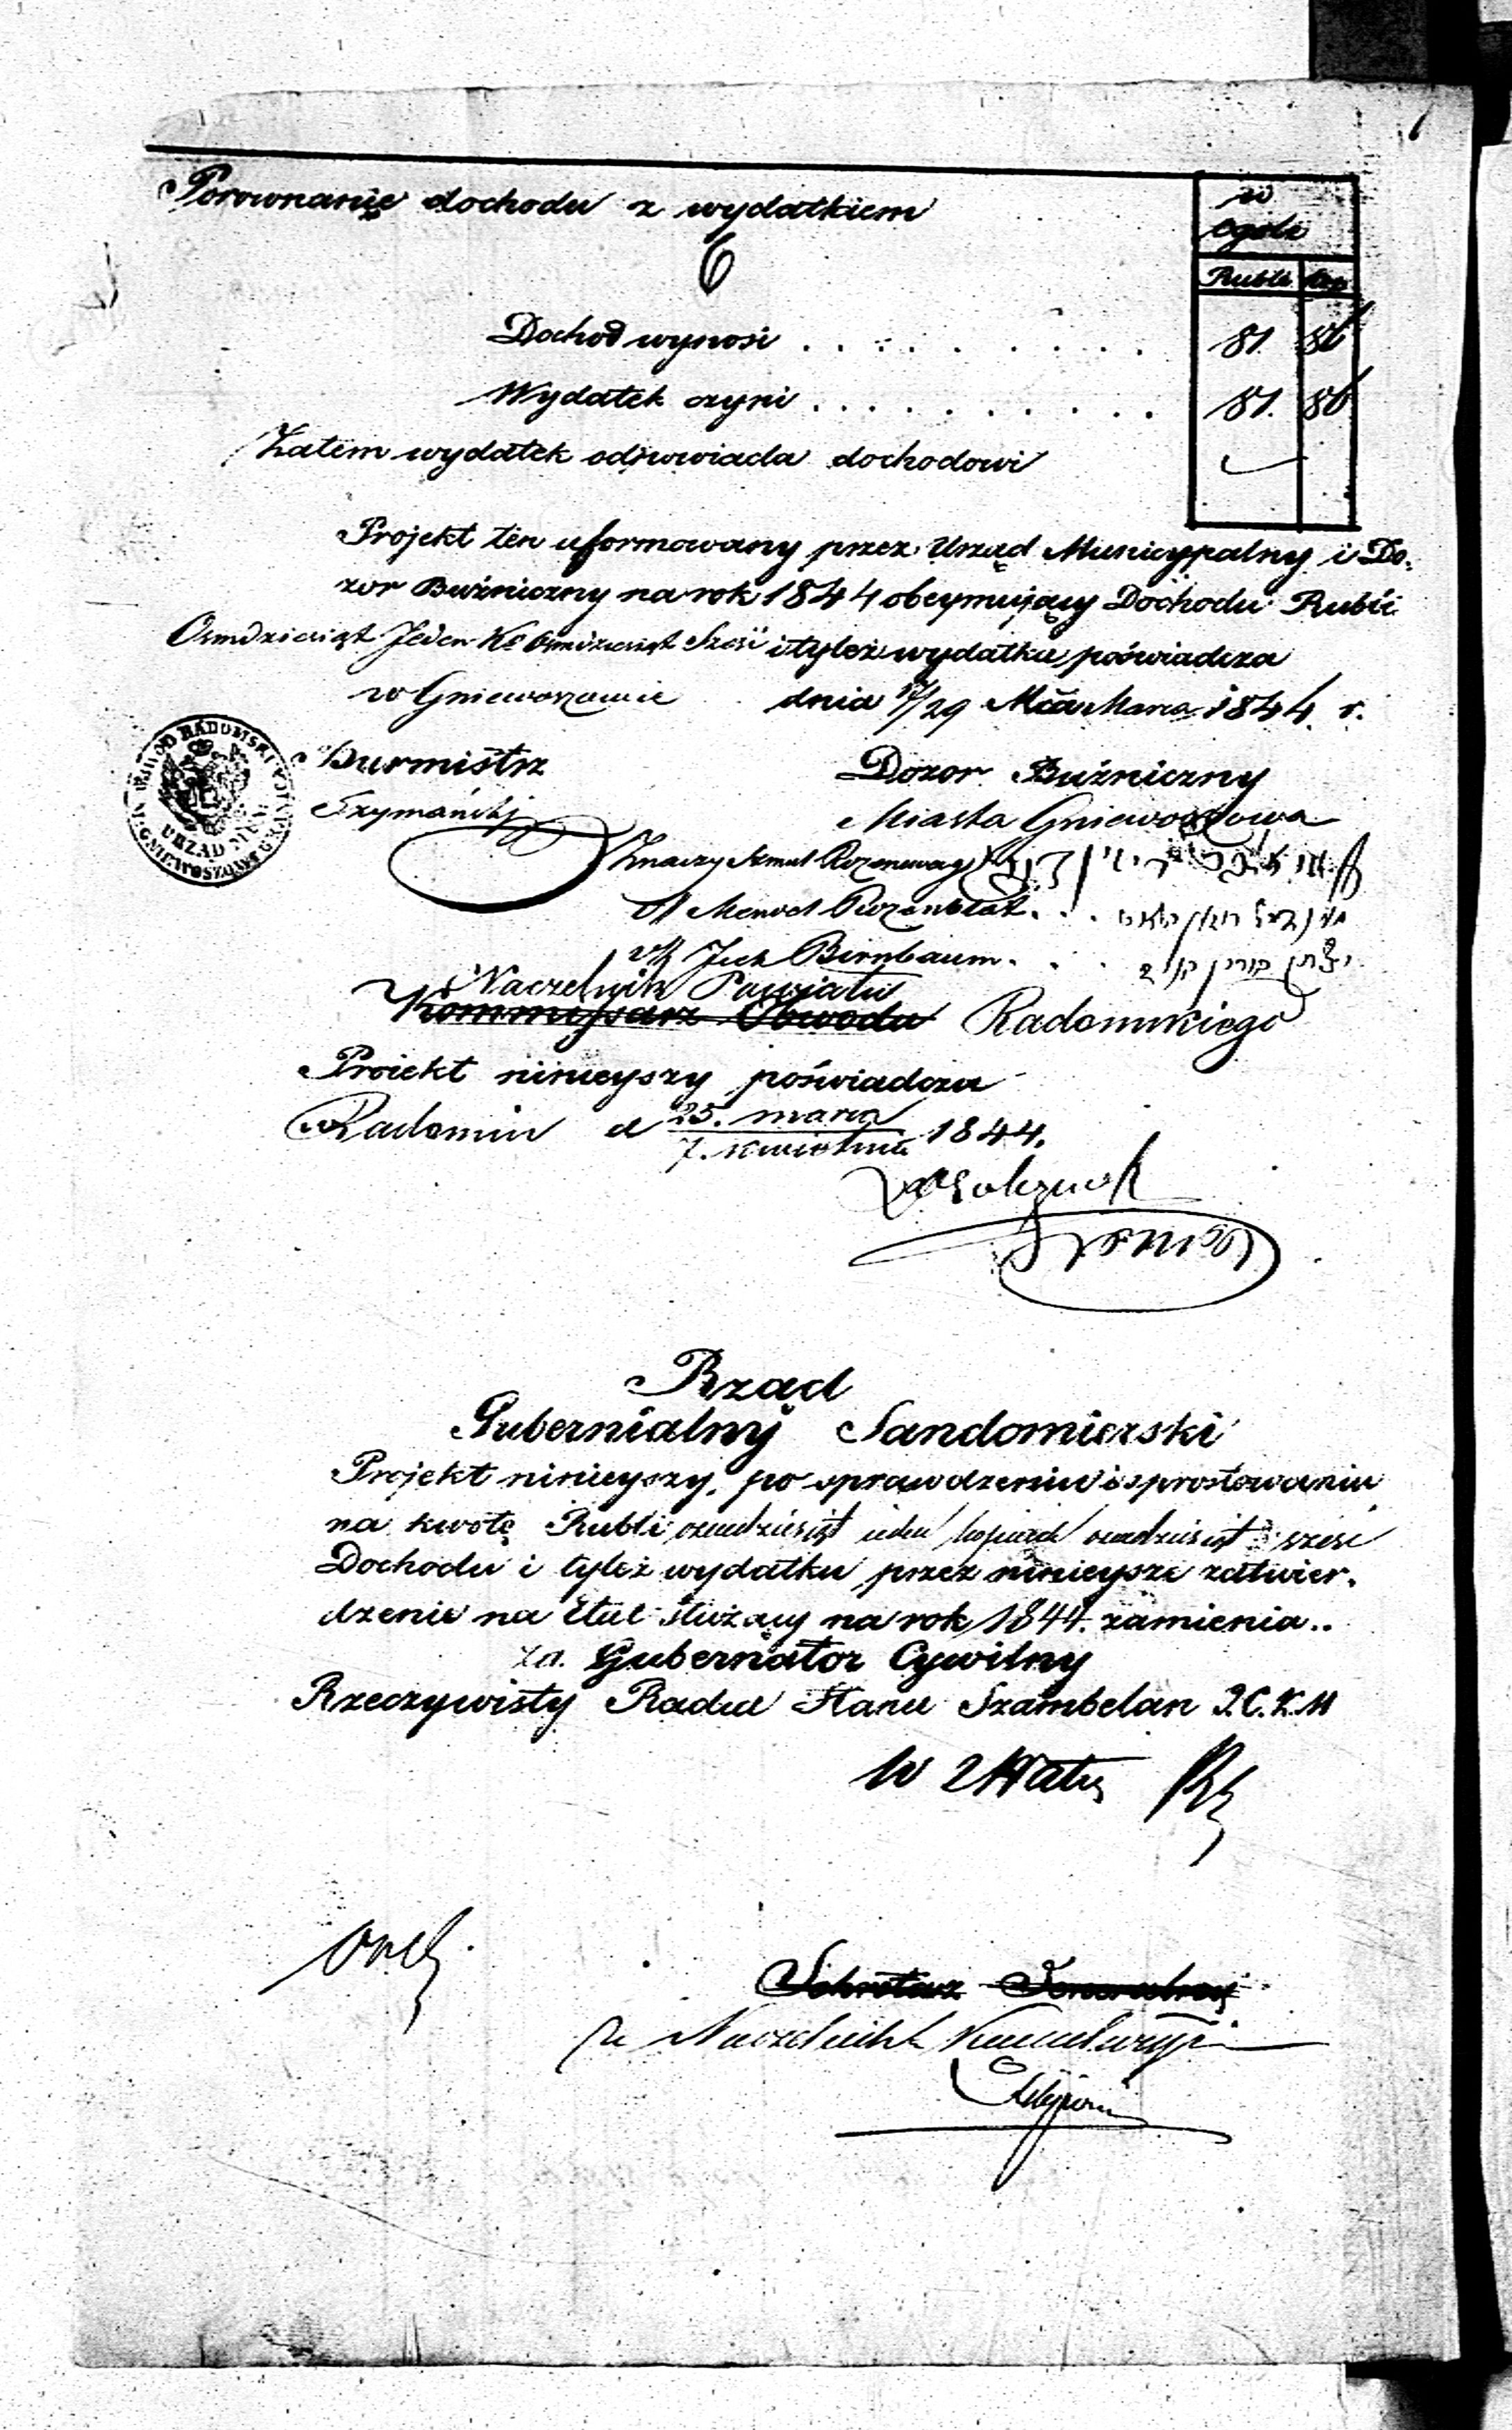 Porownanie dochodu z wydatkiem
w
Ogole
Rubli kop
6
Dochod wynosi . . . . . . . . . 81. 86
Wydatek czyni . . . . . . . . . . 81. 86
Zatem wydatek odpowiada dochodowi
Projekt ten uformowany przez Urząd Municypalny i Do-
zor Buźniczny na rok 1844 obeymuiący Dochodu Rubli
Osmdziesiąt Jeden Ko Osmdziesiąt Sześć i tyleż wydatku, poświadcza
w Gniewoszowie dnia 17/29 Mca Marca 1844. r.
Burmistrz
Szymański
Dozor Buźniczny
Miasta Gniewoszowa
Znaczy Szmul Rozenwag
Mendel Rozenblat . . .
Icek Birnbaum . . .
Naczelnik Powiatu
Kommissarz Obwodu Radomskiego
Proiekt ninieyszy poświadcza
w Radomiu d 25. marca / 7. kwietnia 1844.
Rząd
Gubernialny Sandomierski
Projekt ninieyszy, po sprawdzeniu i sprostowaniu
na kwotę Rubli osmdziesiąt ieden kopieek osmdziesiąt sześć
Dochodu i tyleż wydatku przez ninieysze zatwier-
dzenie na Etat służący na rok 1844. zamienia..
za. Gubernator Cywilny
Rzeczywisty Radca Stanu Szambelan J.C.K.M
Sekretarz Generalny
za Naczelnik Kancelaryi